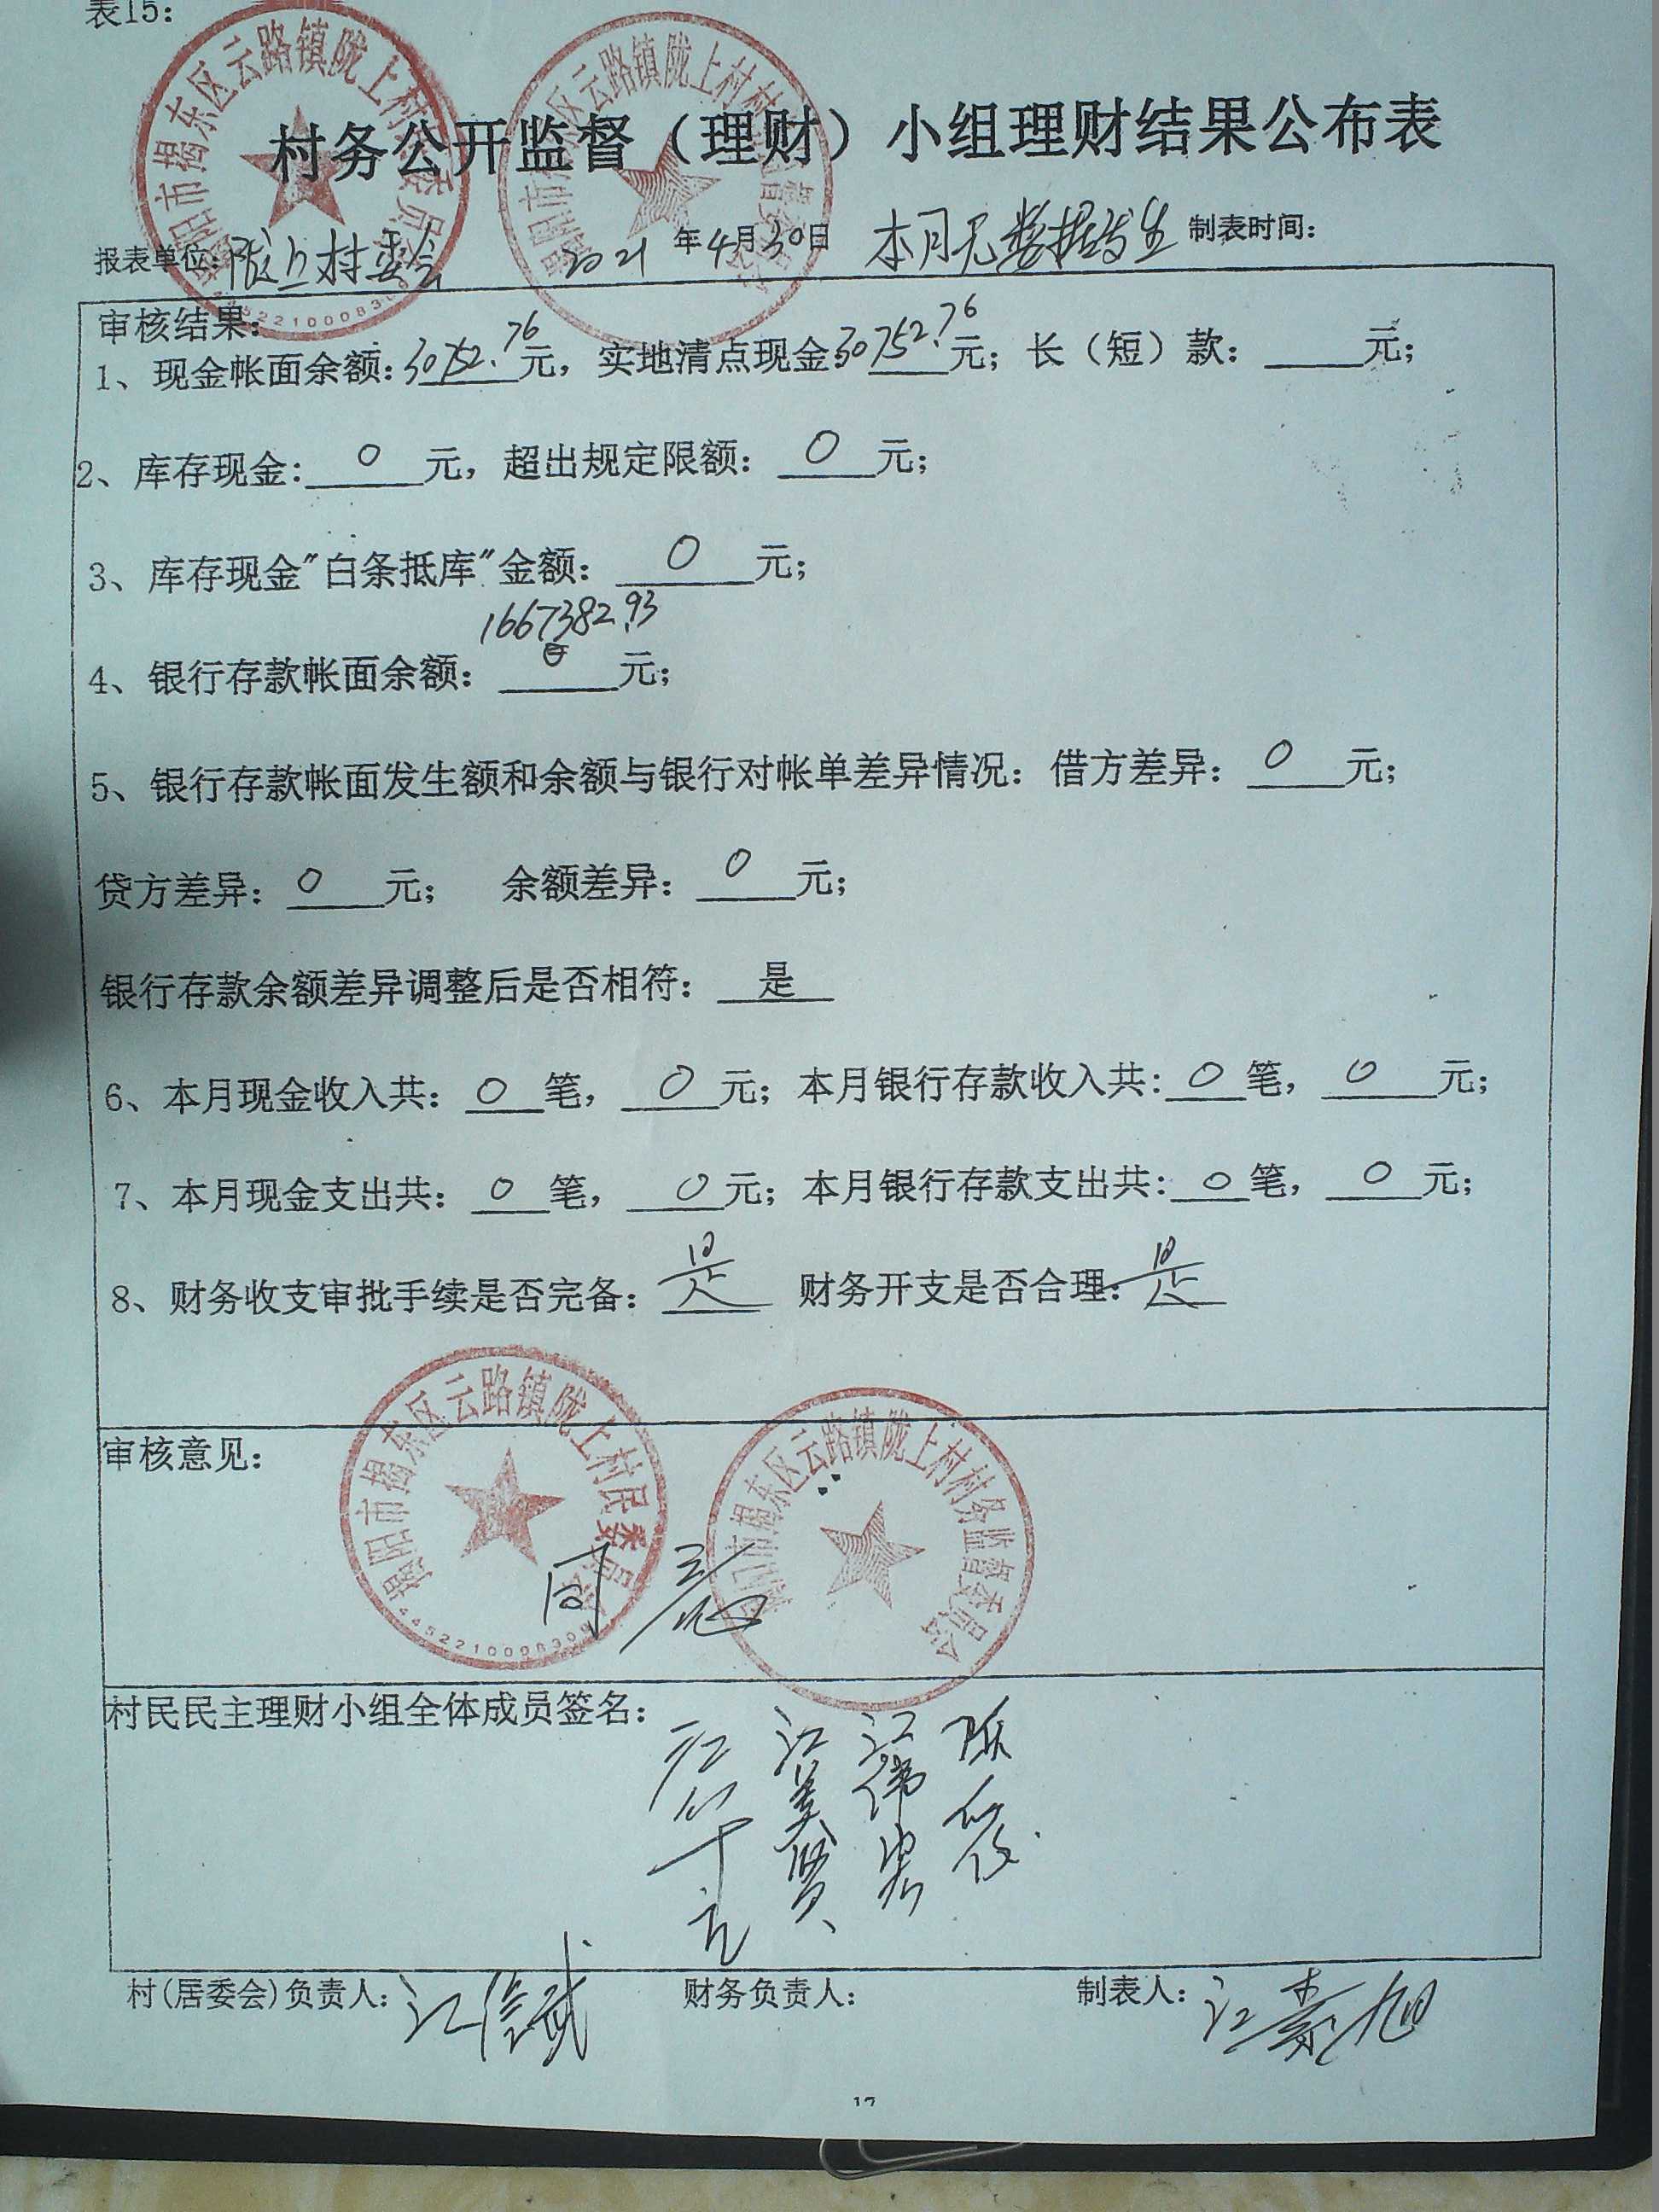 表15:
村务公开监督（理财）小组理财结果公布表
报表单位:陇上村委会 2021 年4月30日 本月无数据发生 制表时间:
审核结果:
1、现金帐面余额:30752.76元，实地清点现金:30752.76元；长（短）款: 元；
2、库存现金: 0 元，超出规定限额: 0 元；
3、库存现金"白条抵库"金额: 0 元；
1667382.93
4、银行存款帐面余额: 元；
5、银行存款帐面发生额和余额与银行对帐单差异情况: 借方差异: 0 元；
贷方差异: 0 元； 余额差异: 0 元；
银行存款余额差异调整后是否相符: 是
6、本月现金收入共: 0 笔， 0 元；本月银行存款收入共: 0 笔， 0 元；
7、本月现金支出共: 0 笔， 0 元；本月银行存款支出共: 0 笔， 0 元；
8、财务收支审批手续是否完备: 是 财务开支是否合理: 是
审核意见:
揭阳市揭东区云路镇陇上村民委员会
揭阳市揭东区云路镇陇上村村务监督委员会
同意
村民民主理财小组全体成员签名:
江美贤
江伟忠
村(居委会)负责人: 财务负责人: 制表人:
17